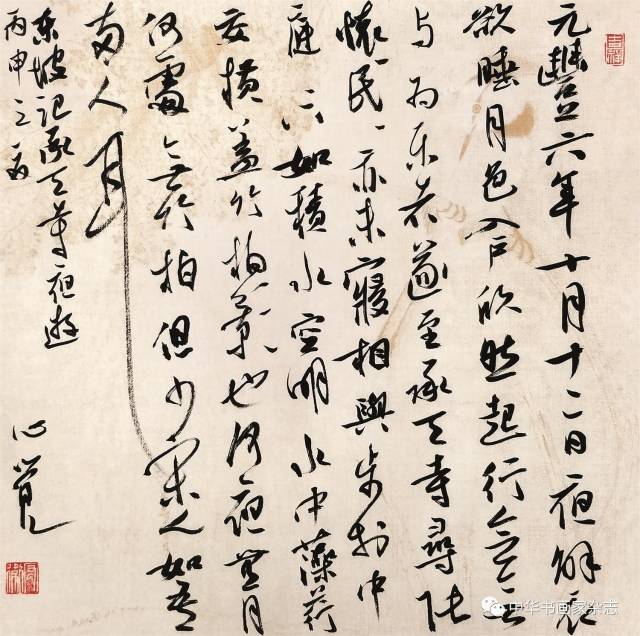 元豐六年十月十二日夜解衣
欲睡月色入户欣然起行念無
与为乐者遂至承天寺尋張
懷民〻亦未寢相與步於中
庭〻下如積水空明水中藻荇
交横蓋竹柏影也何夜無月
何處無竹柏但少閑人如吾
两人耳
东坡记承天寺夜遊
丙申
心覺
中华书画家杂志